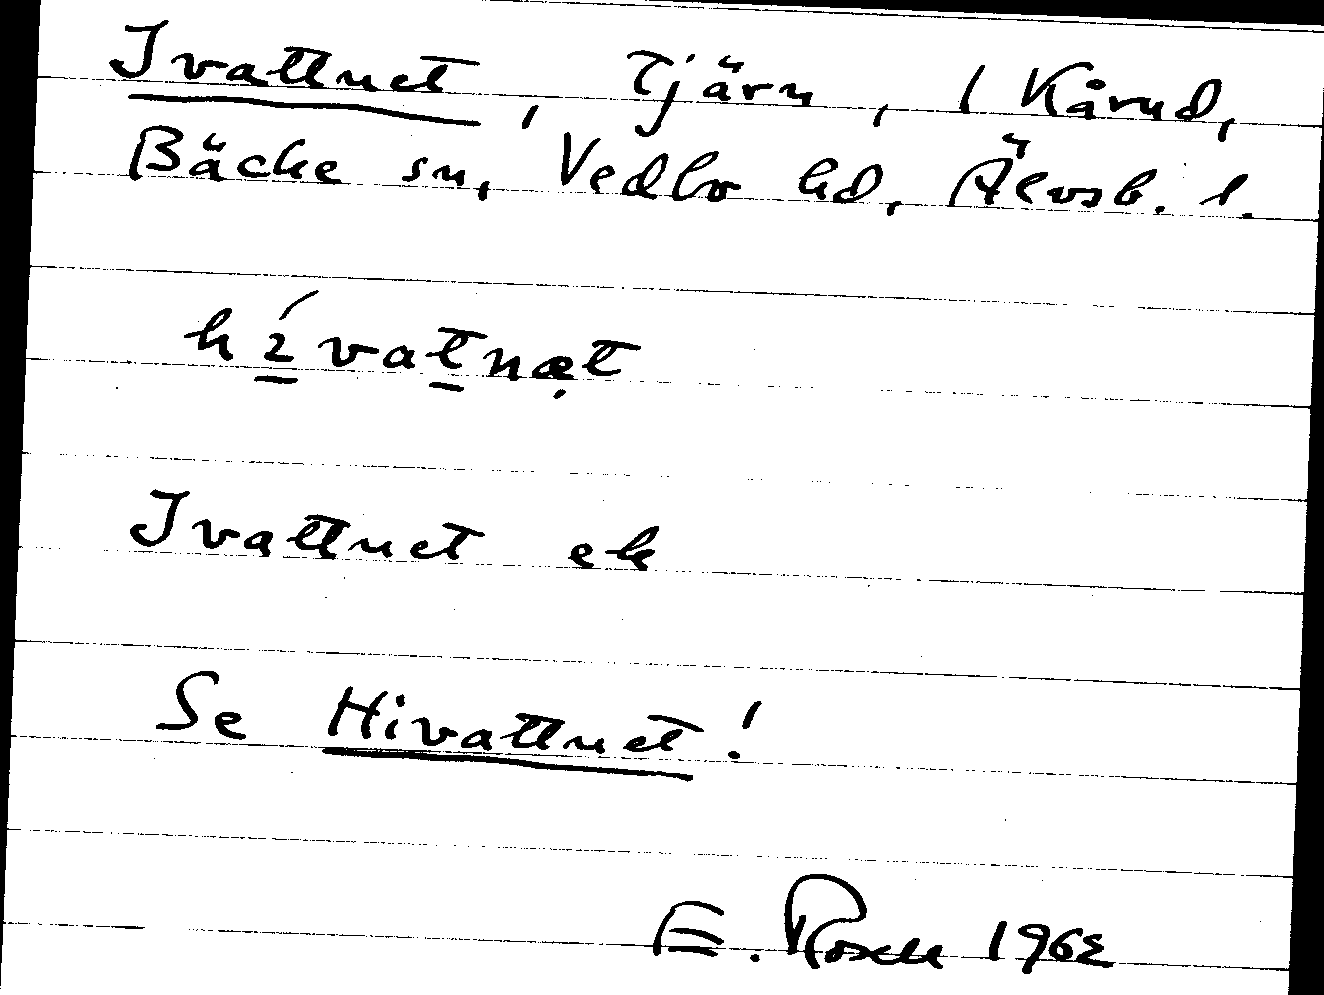 Ivattnet, Tjärn, 1 Kårud,
Bäcke sn, Vedbo hd, Älvsb. l.
hívatnæt
Ivattnet ek
Se Hivattnet!
E. Rosell 1962